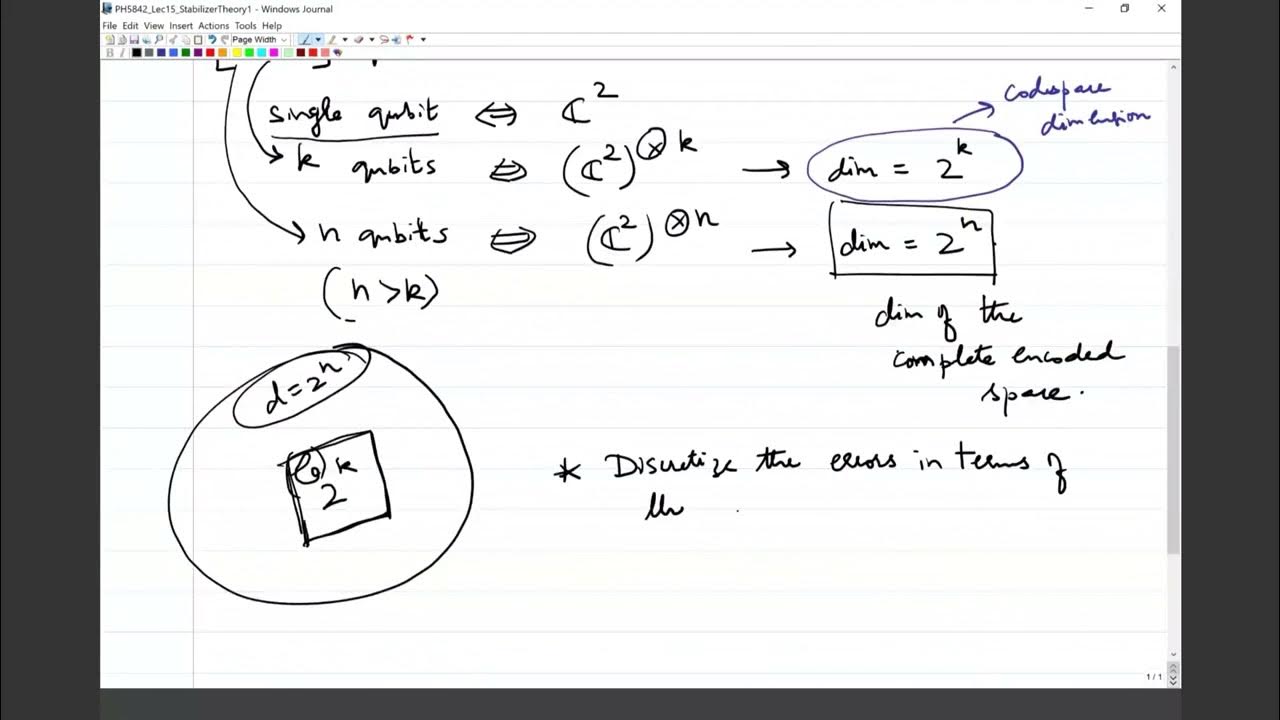 PH5842_Lec15_StabilizerTheory1 - Windows Journal
File Edit View Insert Actions Tools Help
Page Width
single qubit ⇔ ℂ²
codespace
dimension
k qubits ⇔ (ℂ²)^⊗k → dim = 2^k
n qubits ⇔ (ℂ²)^⊗n → dim = 2^n
(n > k)
dim of the
complete encoded
space.
d = 2^n
2^k
* Discretize the errors in terms of
the
1 / 1